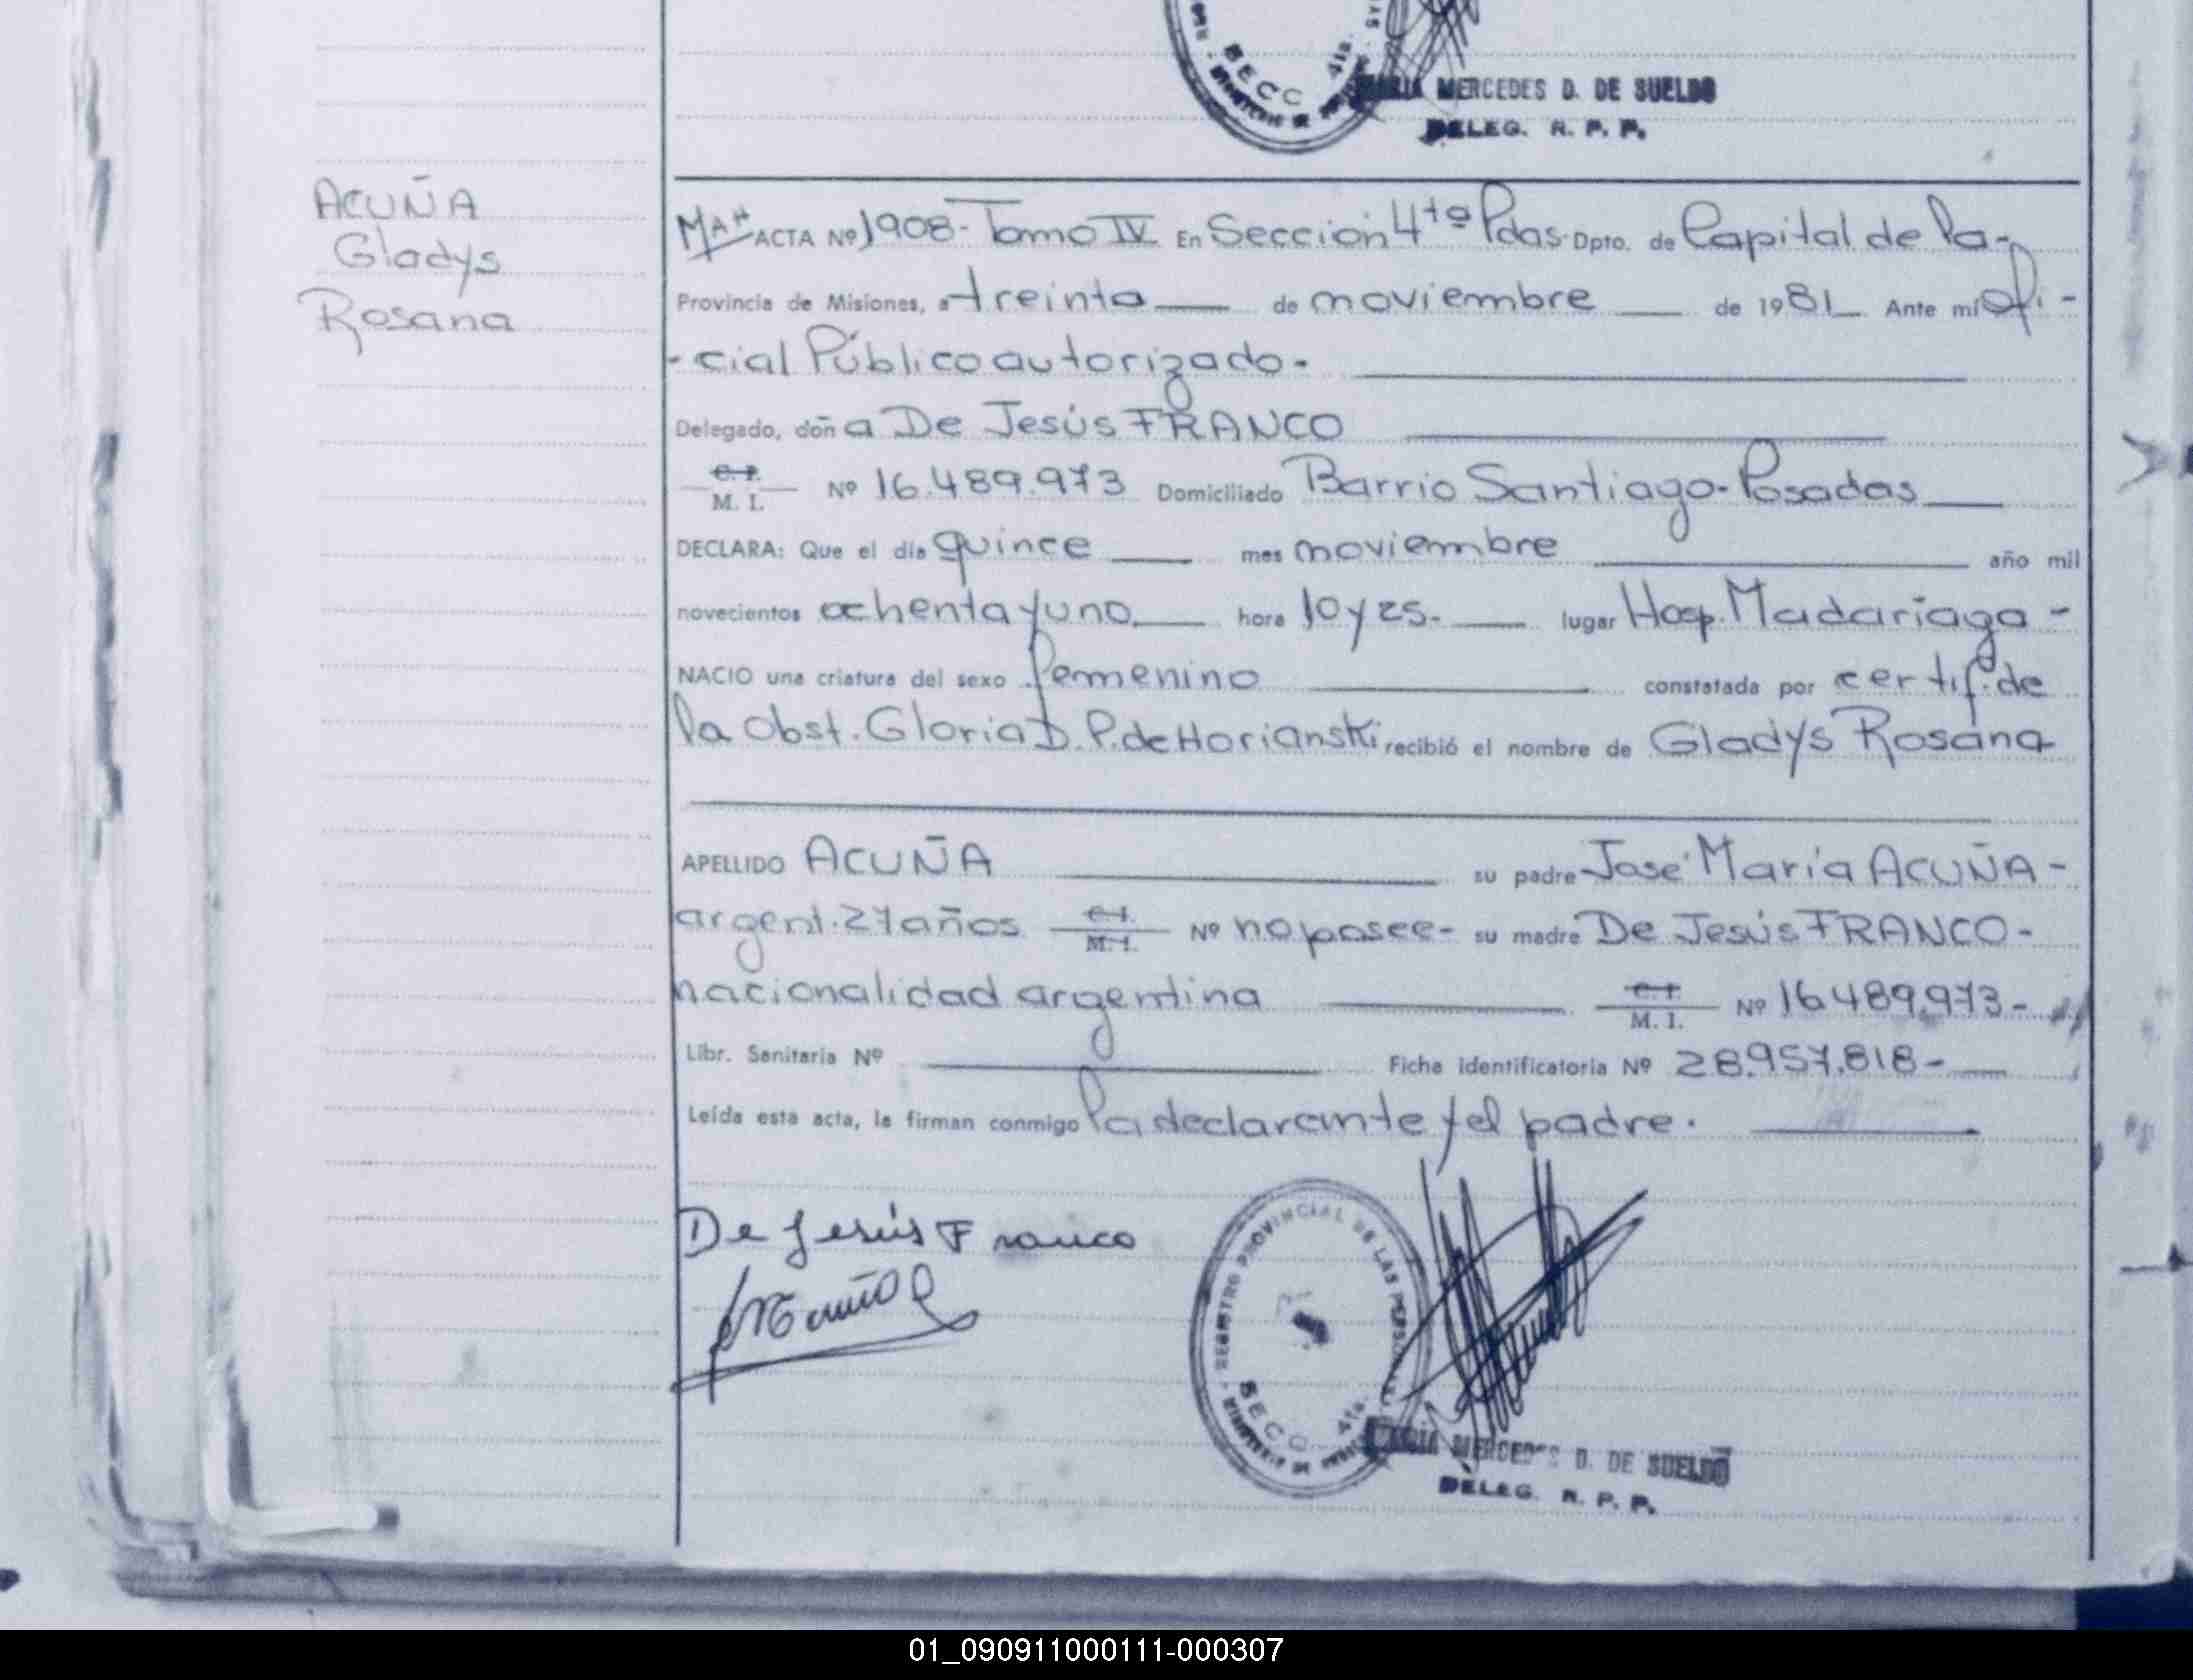 BECC
4ta.
MARIA MERCEDES D. DE SUELDO
DELEG. R. P. P.
ACUÑA
Gladys
Rosana
ACTA Nº 1908-Tomo IV En Sección 4ta Pdas. Dpto. de Capital de la-
Provincia de Misiones, a treinta de noviembre de 1981 Ante mí Ofi-
-cial Público autorizado.
Delegado, doña De Jesús FRANCO
C. I.
M. I. Nº 16.489.973 Domiciliado Barrio Santiago-Posadas
DECLARA: Que el día quince mes noviembre año mil
novecientos ochenta y uno hora 10 y 25. lugar Hosp. Madariaga-
NACIO una criatura del sexo femenino constatada por certif. de
la Obst. Gloria D. P. de Horianski recibió el nombre de Gladys Rosana
APELLIDO ACUÑA su padre José María ACUÑA-
argent. 27 años C. I. M. I. Nº no posee- su madre De Jesús FRANCO-
nacionalidad argentina C. I. M. I. Nº 16.489.973-
Libr. Sanitaria Nº Ficha identificatoria Nº 28.957.818-
Leída esta acta, la firman conmigo la declarante y el padre.
De Jesús Franco
REGISTRO PROVINCIAL DE LAS PERSONAS
BECC 4ta.
MARIA MERCEDES D. DE SUELDO
DELEG. R. P. P.
01_090911000111-000307